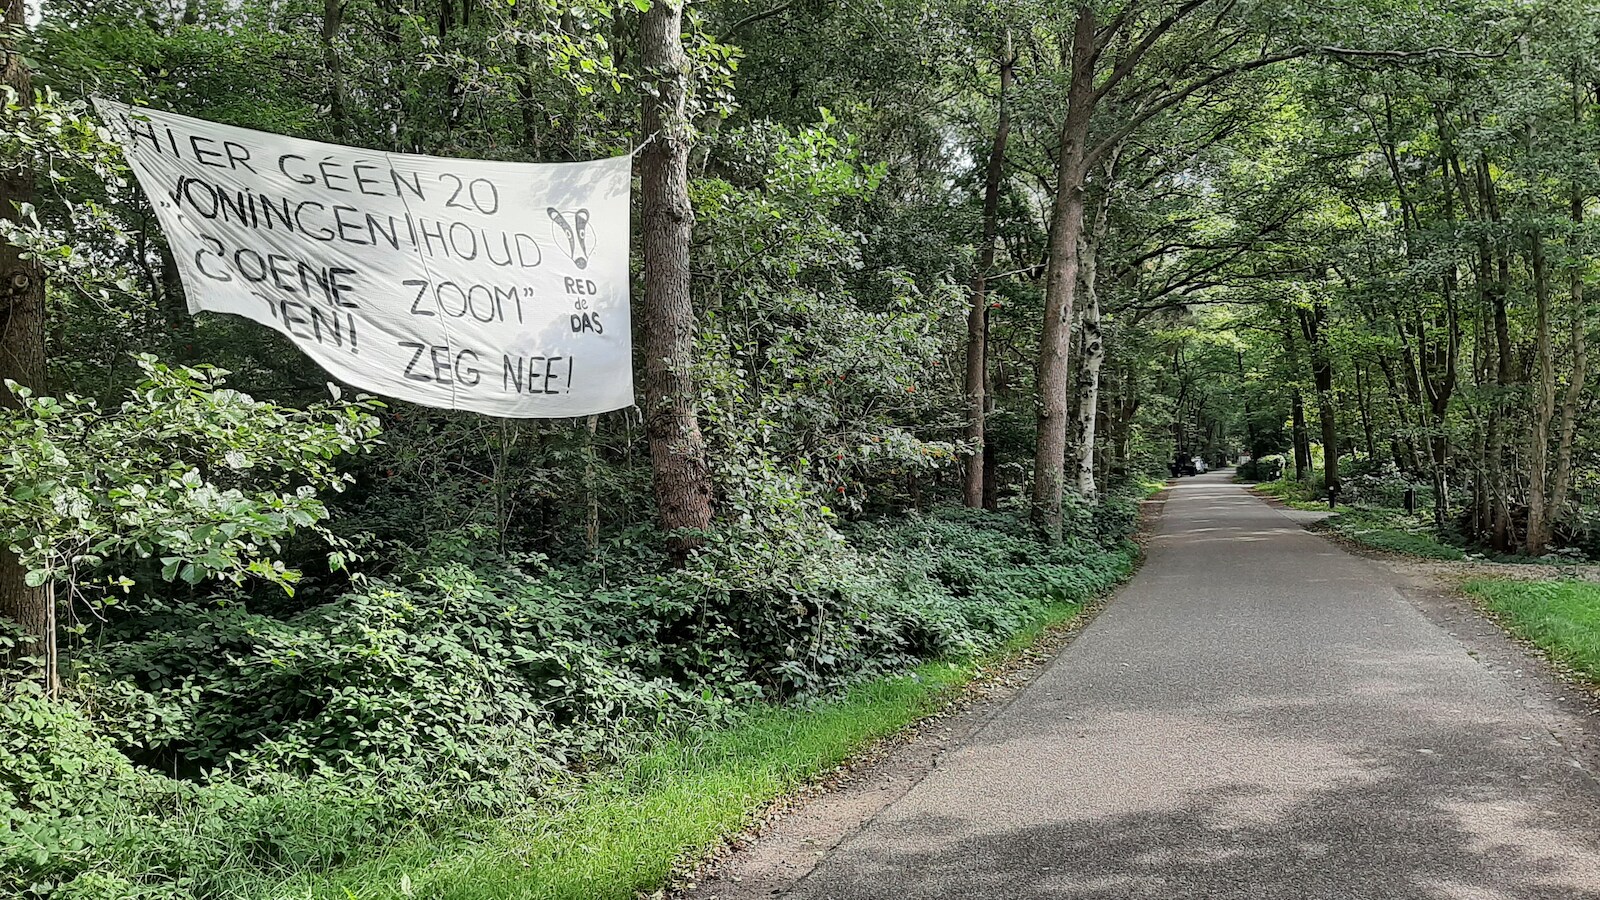 HIER GÉÉN 20
WONINGEN! HOUD
„GROENE ZOOM”
ZEG NEE!
RED
de
DAS